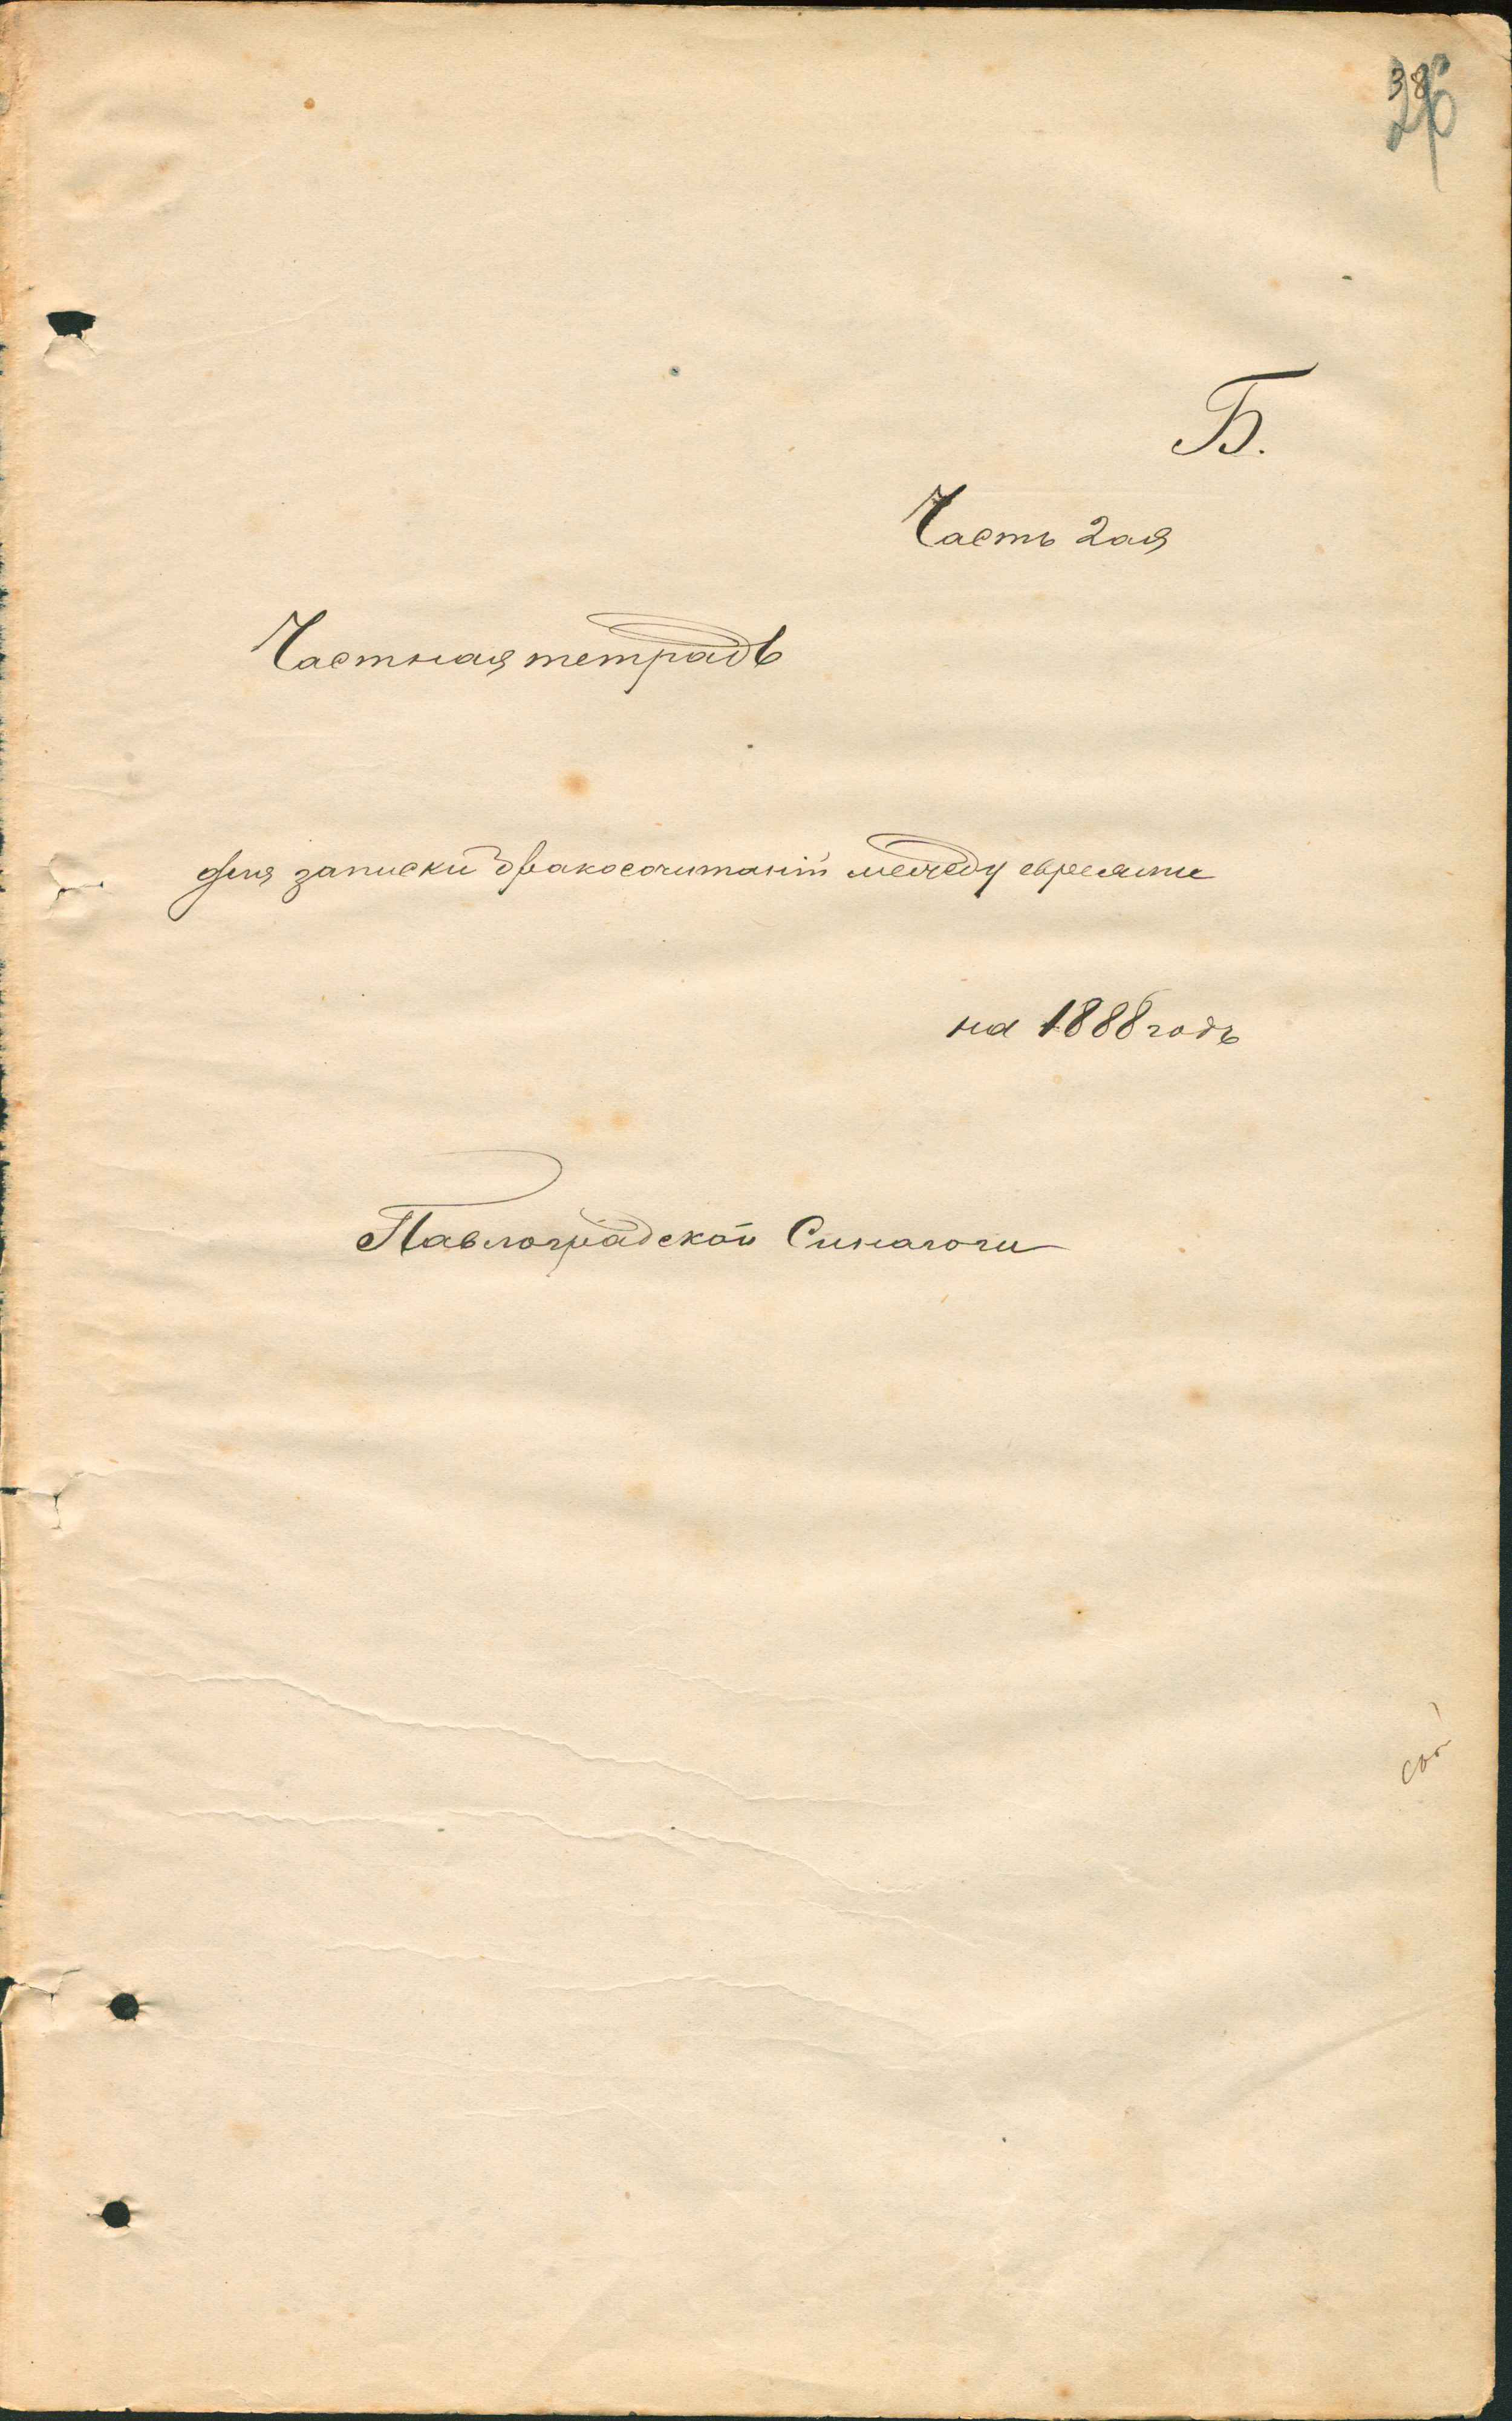 38
Б.
Часть 2ая
Частная тетрадь
для записки бракосочитаній между евреями
на 1888 годъ
Павлоградской Синагоги